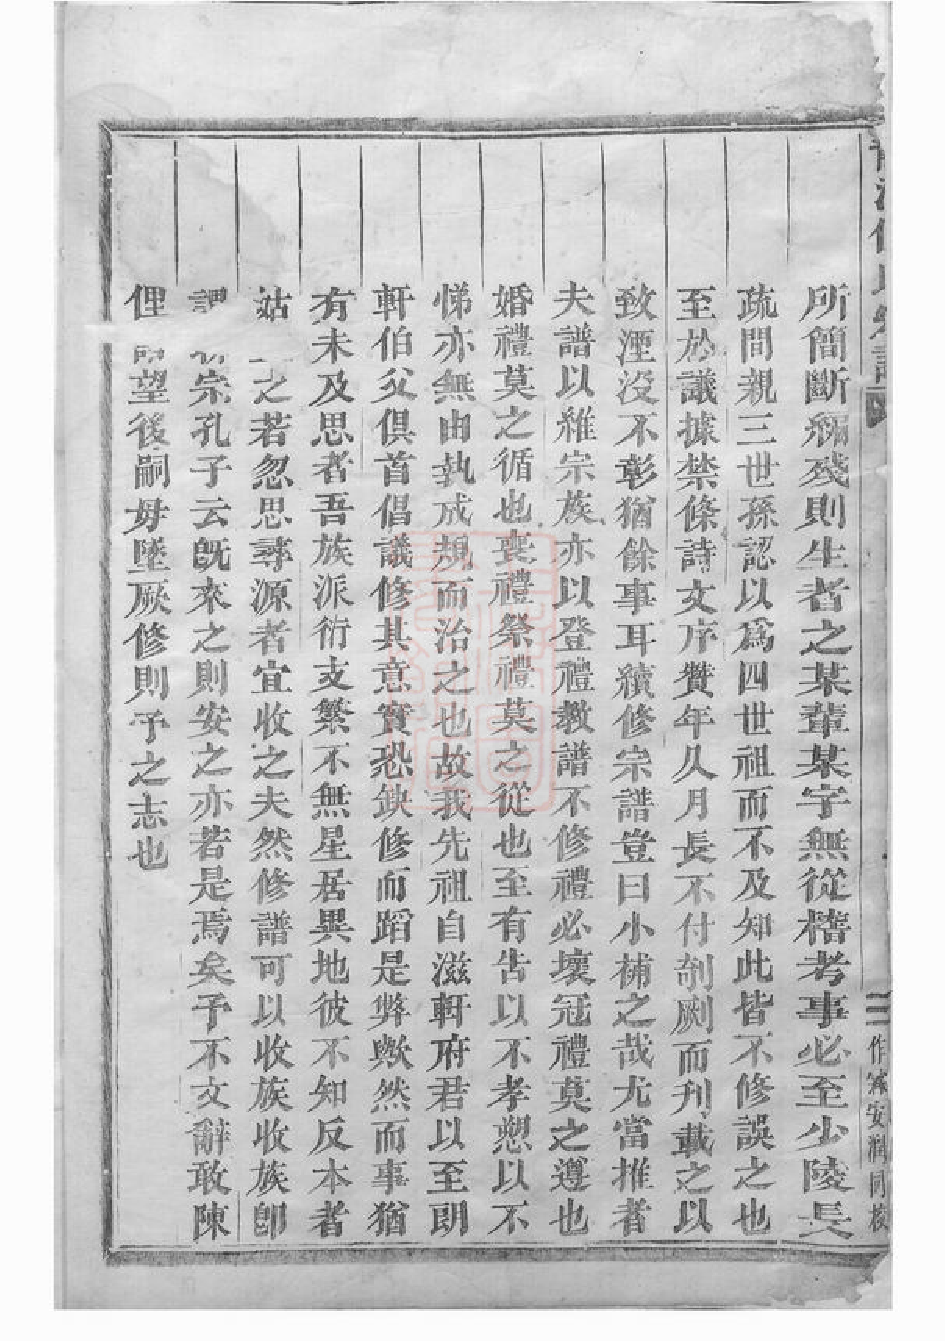 所簡斷編殘則生者之某輩某字無從稽考事必至少陵長
疏間親三世孫認以爲四世祖而不及知此皆不修誤之也
至於議據禁條詩文序贊年久月長不付剞劂而刊載之以
致湮沒不彰猶餘事耳續修宗譜豈曰小補之哉尤當推者
夫譜以維宗族亦以登禮教譜不修禮必壞冠禮莫之遵也
婚禮莫之循也喪禮祭禮莫之從也至有告以不孝愬以不
悌亦無由執成規而治之也故我先祖自滋軒府君以至朗
軒伯父俱首倡議修其意實恐缺修而蹈是弊歟然而事猶
有未及思者吾族派衍支繁不無星居異地彼不知反本者
姑之若忽思尋源者宜收之夫然修譜可以收族收族卽
謂宗孔子云旣來之則安之亦若是焉矣予不文辭敢陳
俚望後嗣毋墜厥修則予之志也
二
作安潤同校